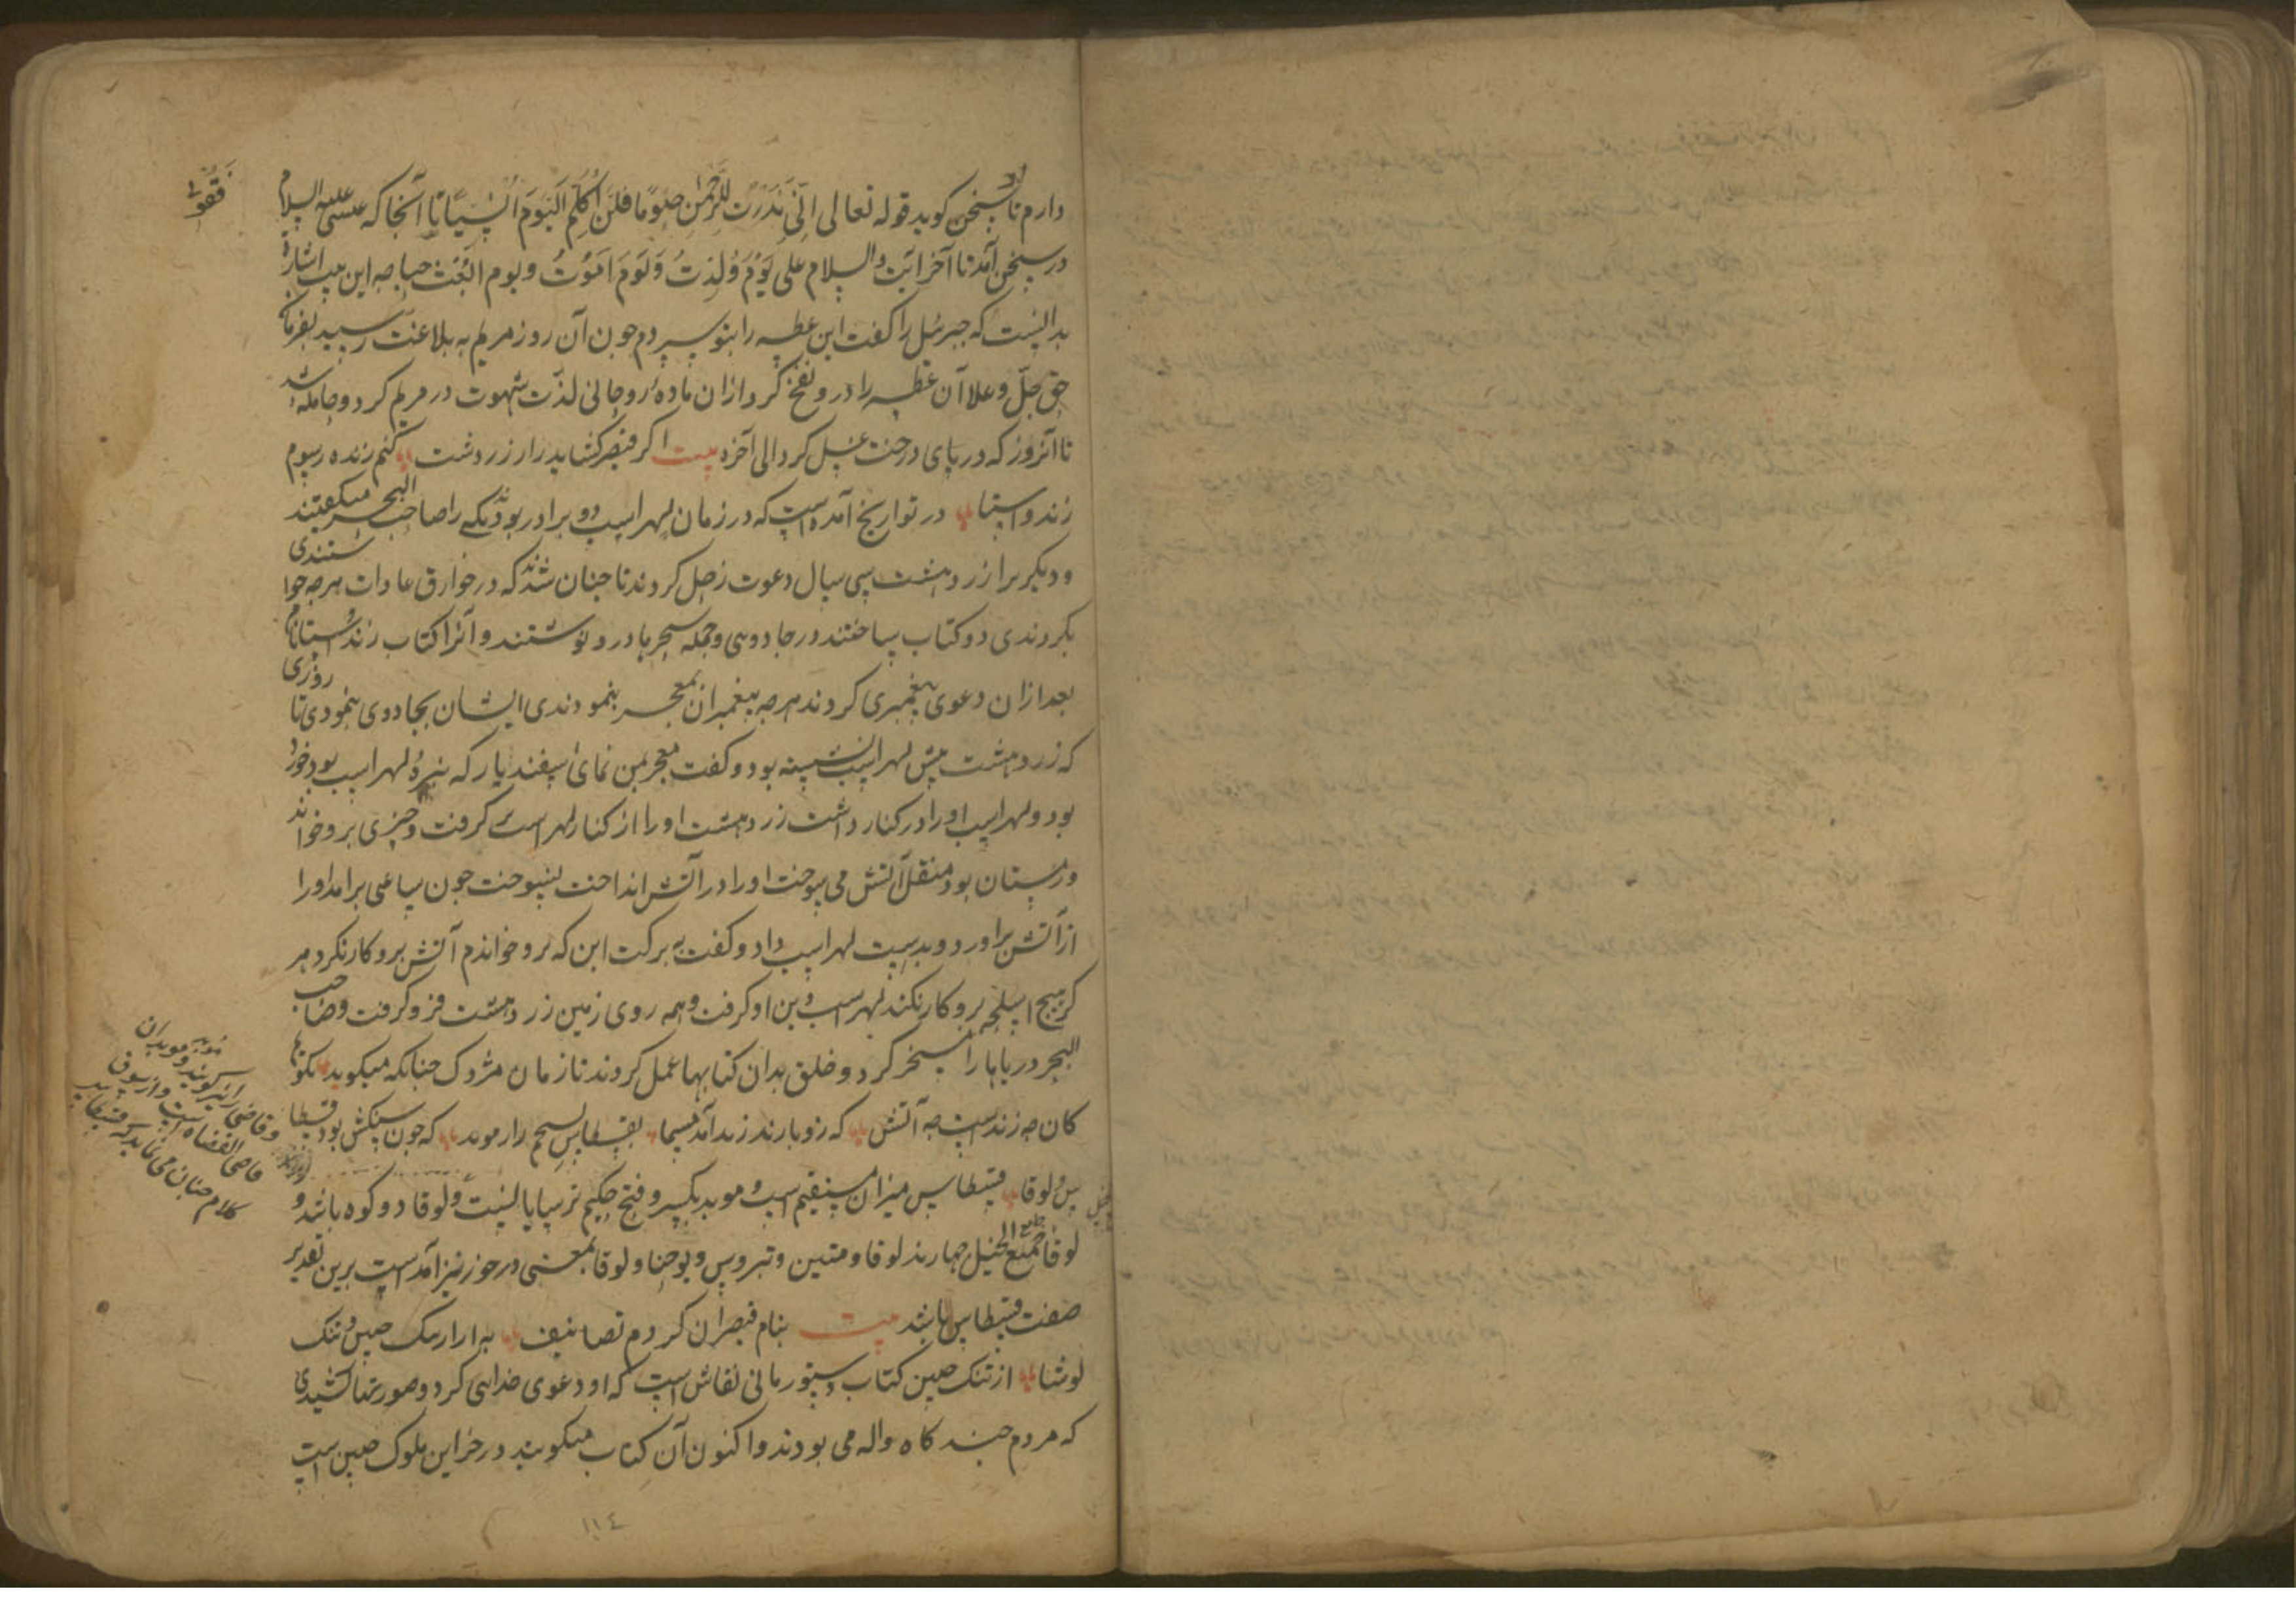 دارم تا سخن کوید قوله تعالی اِنّی نَذَرْتُ لِلرَّحْمٰنِ صَوْمًا فَلَنْ اُکَلِّمَ الْیَوْمَ اِنْسِیًّا تا آنجا که عیسی علیه السلام
فَقُولِی
در سخن آمد تا آخر آیت والسلام علی یَوْمَ وُلِدْتُ وَیَوْمَ اَمُوْتُ ویوم اُبْعَثُ حیا چه این بیت اشارة
بدانست که جبرئیل را کفت این عطسه را بتو سپردم جون آن روز مریم به بلاغت رسید بفرمان
حق جلّ وعلا آن عطسه را درو نفخ کرد ازان مادهٔ روحانی لذّت شهوت در مریم کرد وحامله شد
تا آنروز که در پای درخت غسل کرد الی آخره بیت اکر قیصر سکالد راز زردشت کنم زنده رسوم
زند واستا در تواریخ آمدست که در زمان لهراسب دو برادر بودند یکی را صاحب البحر میکفتند
ودیکر برا زردهشت سی سال دعوت زحل کردند تا جنان شدند که در خوارق عادات هرجه خواستندی
بکردندی دو کتاب بساختند در جادوی وجمله سحرها درو نوشتند وآنرا کتاب زند واستا نام
بعد ازان دعوی پیغمبری کردند هرجه پیغمبران بمعجز بنمودندی ایشان بجادوی بنمودی تا روزی
که زردهشت پیش لهراسب نشسته بود وکفت معجز بمن نمای اسفندیار که نبیرهٔ لهراسب بود خورد
بود ولهراسب اورا در کنار داشت زردهشت اورا از کنار لهراسب کرفت وچیزی برو خواند
وزمستان بود منقل آتش می سوخت اورا در آتش انداخت نسوخت جون ساعتی برامد اورا
از آتش براورد وبدست لهراسب داد وکفت به برکت این که برو خواندم آتش برو کار نکرد هر
کز هیچ اسلحه برو کار نکند لهراسب دین او کرفت وهمه روی زمین زردهشت فرو کرفت وصاحب
البحر دریاها را مسخر کرد وخلق بدان کتابها عمل کردند تا زمان مزدک جنانکه میکوید بکویم
کان چه زندست چه آتش که زو پازند زند آمد مسما بقسطاس بسنجم راز موبد که جون سنکش بود قسطا
س لوقا قسطاس میزان مستقیم است وموبد بکسر وفتح حکیم ترسایانست ولوقا دو کوه باشد و
لوقا جامع انجیل چهارند لوقا ومتین ویوحنا ولوقا بمعنی در خور نیز آمدست برین تقدیر
صفت قسطاس باشد بیت بنام قیصران کردم تصانیف به از ارتنک چین وتنک
لوشا از تنک چین کتاب دستور مانی نقاش است که او دعوی خدایی کرد وصورتها کشیدی
که مردم جند کاه واله می بودند واکنون آن کتاب میکویند در خزاین ملوک چین است
موبد موبدان
را نیز کویند
وقاضی القضاة است
کلام جنان می نماید که قسطا
١١٤